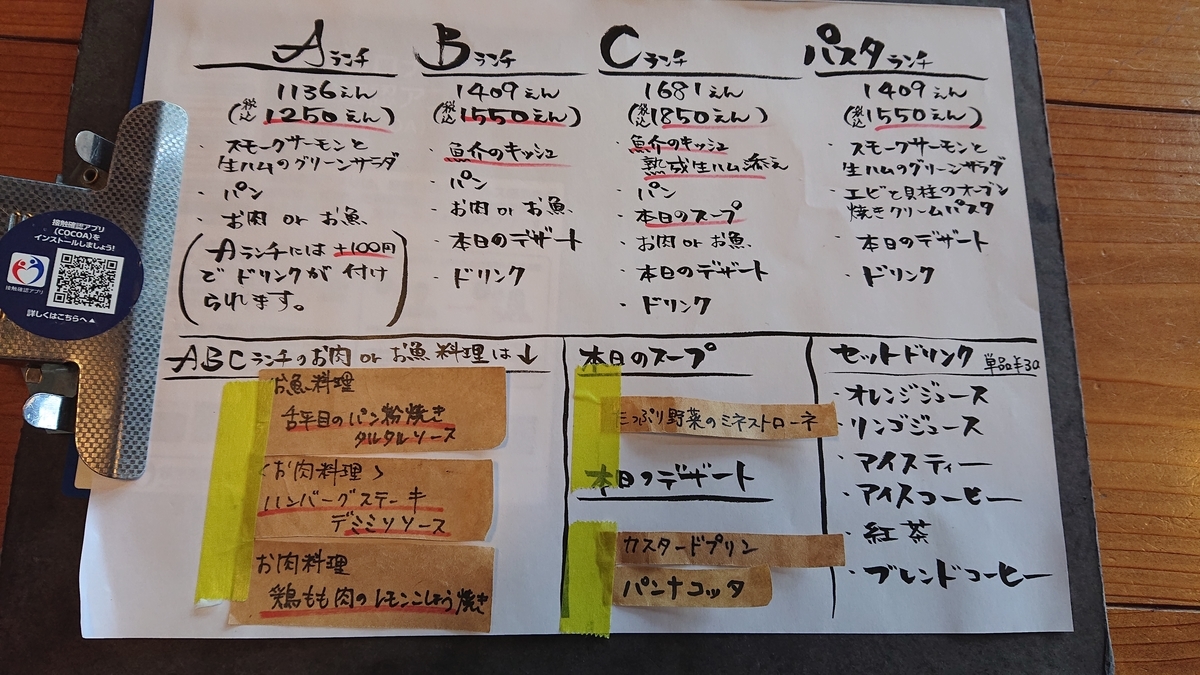 Aランチ
1136えん
(税込1250えん)
・スモークサーモンと
生ハムのグリーンサラダ
・パン
・お肉 or お魚
(Aランチには +100円
でドリンクが付け
られます。)
Bランチ
1409えん
(税込1550えん)
・魚介のキッシュ
・パン
・お肉 or お魚
・本日のデザート
・ドリンク
Cランチ
1681えん
(税込1850えん)
・魚介のキッシュ
熟成生ハム添え
・パン
・本日のスープ
・お肉 or お魚
・本日のデザート
・ドリンク
パスタランチ
1409えん
(税込1550えん)
・スモークサーモンと
生ハムのグリーンサラダ
・エビと貝柱のオーブン
焼きクリームパスタ
・本日のデザート
・ドリンク
接触確認アプリ
(COCOA)を
インストールしましょう!
接触確認アプリ
詳しくはこちらへ▲
ABCランチのお肉 or お魚料理は↓
お魚料理
舌平目のパン粉焼き
タルタルソース
<お肉料理>
ハンバーグステーキ
デミミソソース
お肉料理
鶏もも肉のレモンこしょう焼き
本日のスープ
たっぷり野菜のミネストローネ
本日のデザート
カスタードプリン
パンナコッタ
セットドリンク 単品¥30
・オレンジジュース
・リンゴジュース
・アイスティー
・アイスコーヒー
・紅茶
・ブレンドコーヒー